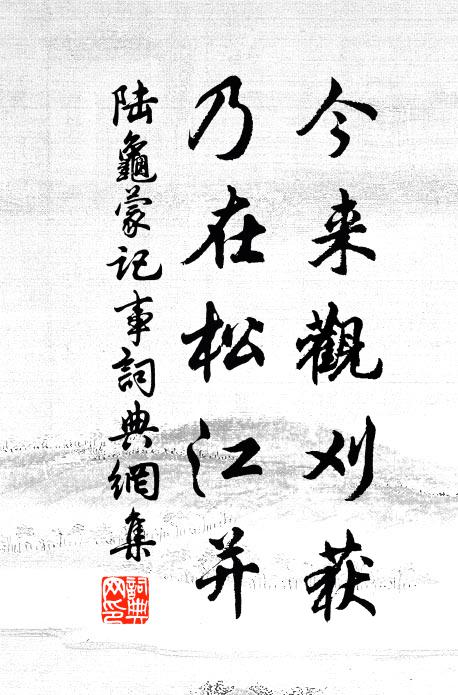 今来觀刈获
乃在松江并
陆龜蒙记事詞典網集
詞典网印